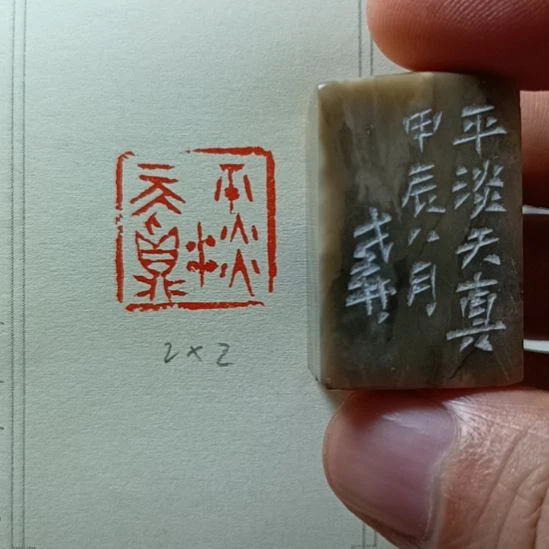 平淡
天真
2×2
平淡天真
甲辰八月